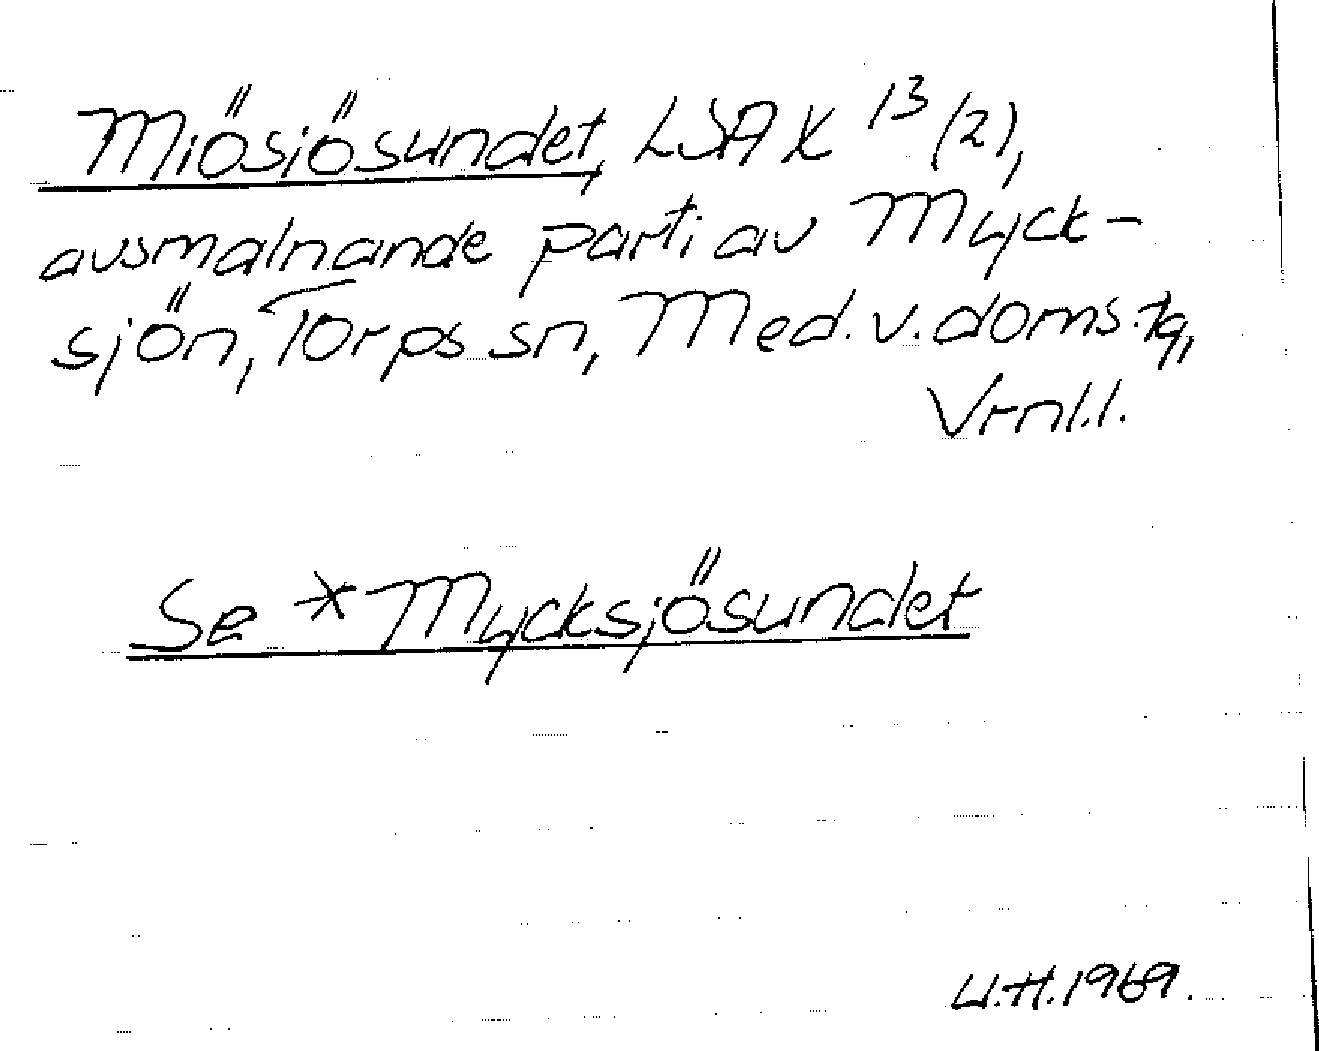 Miösiösundet, LSA X 13/(2),
avsmalnande parti av Myck-
sjön, Torps sn, Med. v. doms. tg,
Vrnl.l.
Se *Mycksjösundet
U.H. 1969.